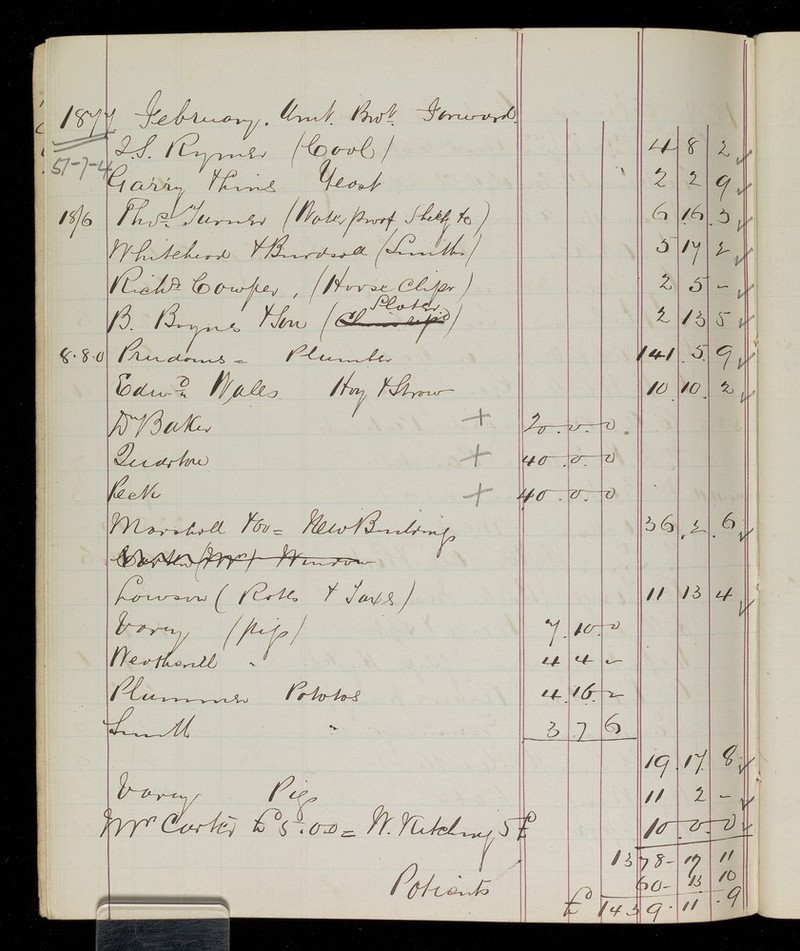 1877 February. Amt. Brot. Forward.
J.S. Rymer (Cool) 4 8 2
57-7-4
Garry & Hine Yeast 2 2 9
18/6 Thos. Turner (Water proof Sheeg &c) 6 16 3
Whitehead & Burdsall (Smiths) 5 17 2
Richd. Cowper, (Horse Cliper) 2 5 -
B. Bryne & Son (Slater) 2 13 5
8.8.0 Prudoms = Plumber 141. 5. 9
Edwd. Wales Hay & Straw 10. 10. 2
Dr Baker + 20.0.0.
+ 40.0.0
Peck + 40.0.0
Marshall & Co = New Buildings 36.2.6
(Mr) Window
Lowson (Rates & Taxes) 11 13 4
Varey (pigs) 7.10.0
Weatherill " 4 4 -
Plummer Potatos 4.16.-
Smith " 3 7 6
19.17.8
Varey Pig 11 2 -
Mrs Carter £5.0.0 = W. Kitching 5£ 10.0.0
1378-17 11
Patients 60-13 10
£ 1439.11.9